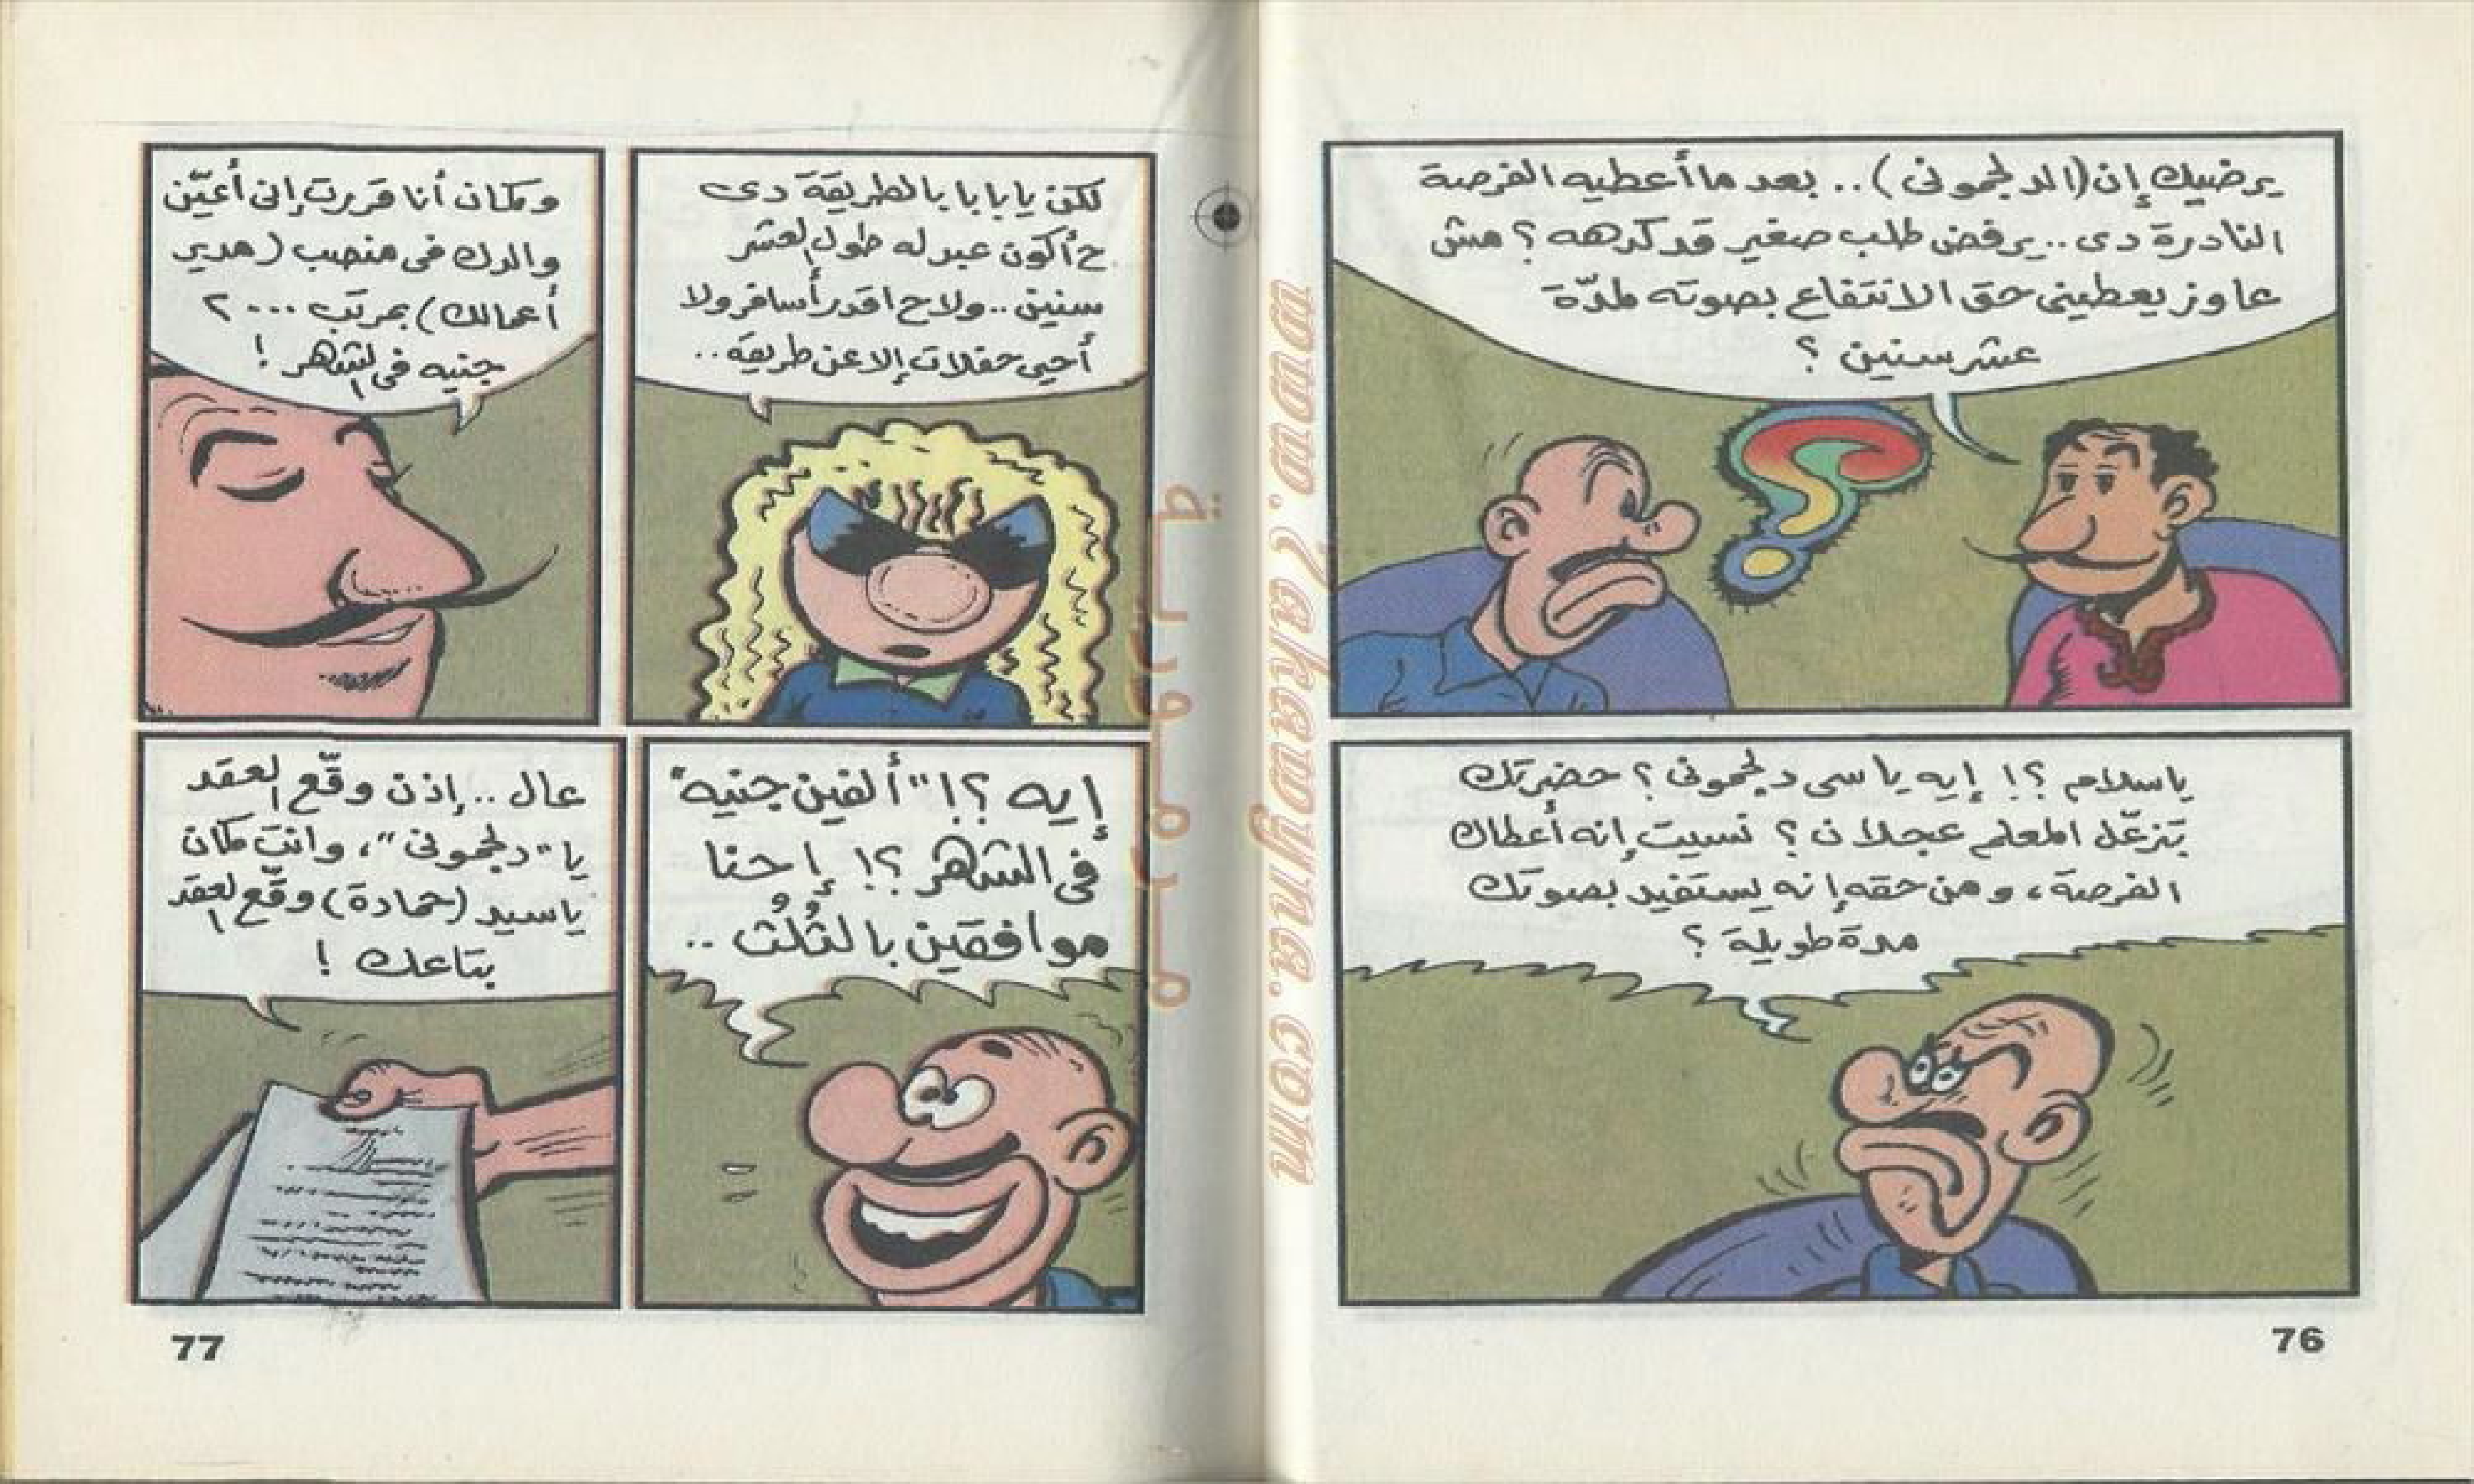 يرضيك إن (الدلجمونى) .. بعد ما أعطيه الفرصة
النادرة دى .. يرفض طلب صغير قد كدهه ؟ مش
عاوز يعطينى حق الانتفاع بصوته لمدّة
عشر سنين ؟
ياسلام ؟! إيه ياسى دلجمونى ؟ حضرتك
بتزعّل المعلم عجلان ؟ نسيت إنه أعطاك
الفرصة ، ومن حقه إنه يستفيد بصوتك
مدة طويلة ؟
76
لكن يا بابا بالطريقة دى
ح أكون عبد له طول العشر
سنين .. ولا ح اقدر أسافر ولا
أحيى حفلات إلا عن طريقه ..
وكمان أنا قررت إنى أعيّن
والدك فى منصب (مدير
أعمالك) بمرتب ٢٠٠٠
جنيه فى الشهر !
إيه ؟! "ألفين جنيه"
فى الشهر ؟! إحنا
موافقين بالثُلُث ..
عال .. إذن وقّع العقد
يا "دلجمونى" ، وانت كمان
ياسيد (حمادة) وقّع العقد
بتاعك !
77
www.7akawyna.com